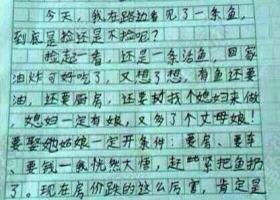 今天，我在路边看见了一条鱼，
到底是捡还是不捡呢？
捡起一看，还是一条活鱼，回家
油炸可好吃了，又想了想，有鱼还要
油，还要厨房，还要找个媳妇来做
媳妇一定有娘，又多了个丈母娘！
要娶她姑娘一定开条件：要房、要车、
要钱一我恍然大悟，赶紧把鱼扔
了。现在房价跌的这么厉害，肯定是